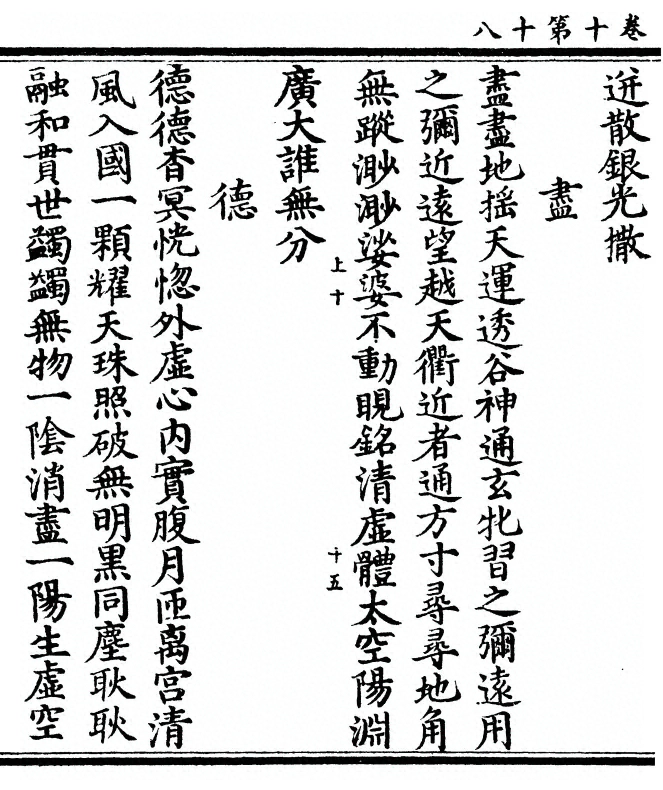 卷十第十八
迸散銀光撒
盡
盡盡地揺天運透谷神通玄牝習之彌遠用
之彌近遠望越天衢近者通方寸尋尋地角
無蹤渺渺娑婆不動睍銘清虛體太空陽淵
上十
十五
廣大誰無分
德
德德杳冥恍惚外虛心内實腹月匝离宮清
風入國一顆耀天珠照破無明黒同塵耿耿
融和貫世蠲蠲無物一陰消盡一陽生虛空